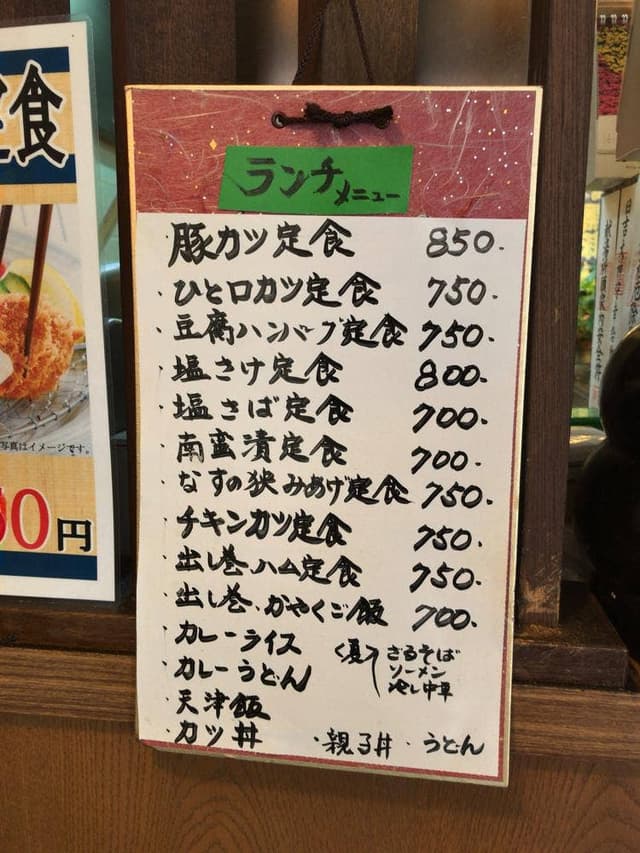 定食
写真はイメージです。
00円
ランチメニュー
・豚カツ定食 850.
・ひと口カツ定食 750.
・豆腐ハンバーグ定食 750.
・塩さけ定食 800.
・塩さば定食 700.
・南蛮漬定食 700.
・なすの狭みあげ定食 750.
・チキンカツ定食 750.
・出し巻、ハム定食 750.
・出し巻、かやくご飯 700.
・カレーライス
・カレーうどん
・天津飯
・カツ丼 ・親子丼 ・うどん
<夏>
ざるそば
ソーメン
冷し中華